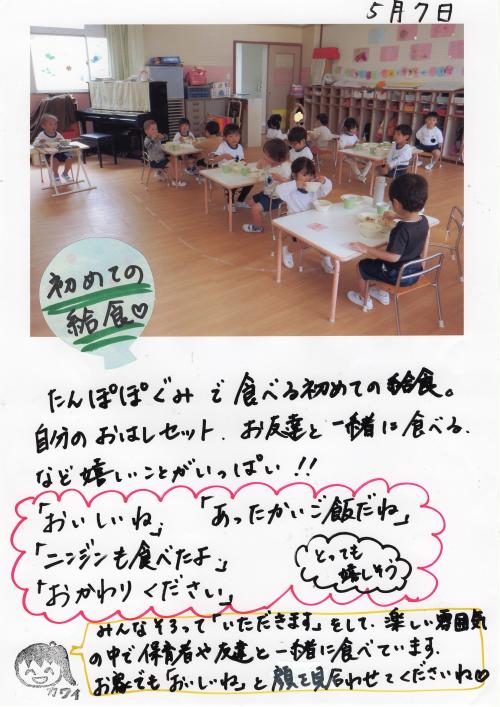 5月7日
初めての
給食♡
たんぽぽぐみで食べる初めての給食。
自分のおはしセット、お友達と一緒に食べる、
など嬉しいことがいっぱい!!
「おいしいね」「あったかいご飯だね」
「ニンジンも食べたよ」
「おかわりください」
とっても
嬉しそう
みんなそろって「いただきます」をして、楽しい雰囲気
の中で保育者や友達と一緒に食べています。
お家でも「おいしいね」と顔を見合わせてくださいね♡
カワイ